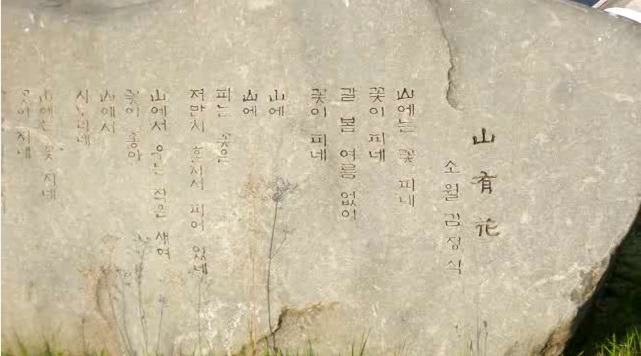 山有花
소월 김정식
山에는 꽃 피네
꽃이 피네
갈 봄 여름 없이
꽃이 피네
山에
山에
피는 꽃은
저만치 혼자서 피어 있네
山에서 우는 작은 새여
꽃이 좋아
山에서
사노라네
山에는 꽃 지네
꽃이 지네